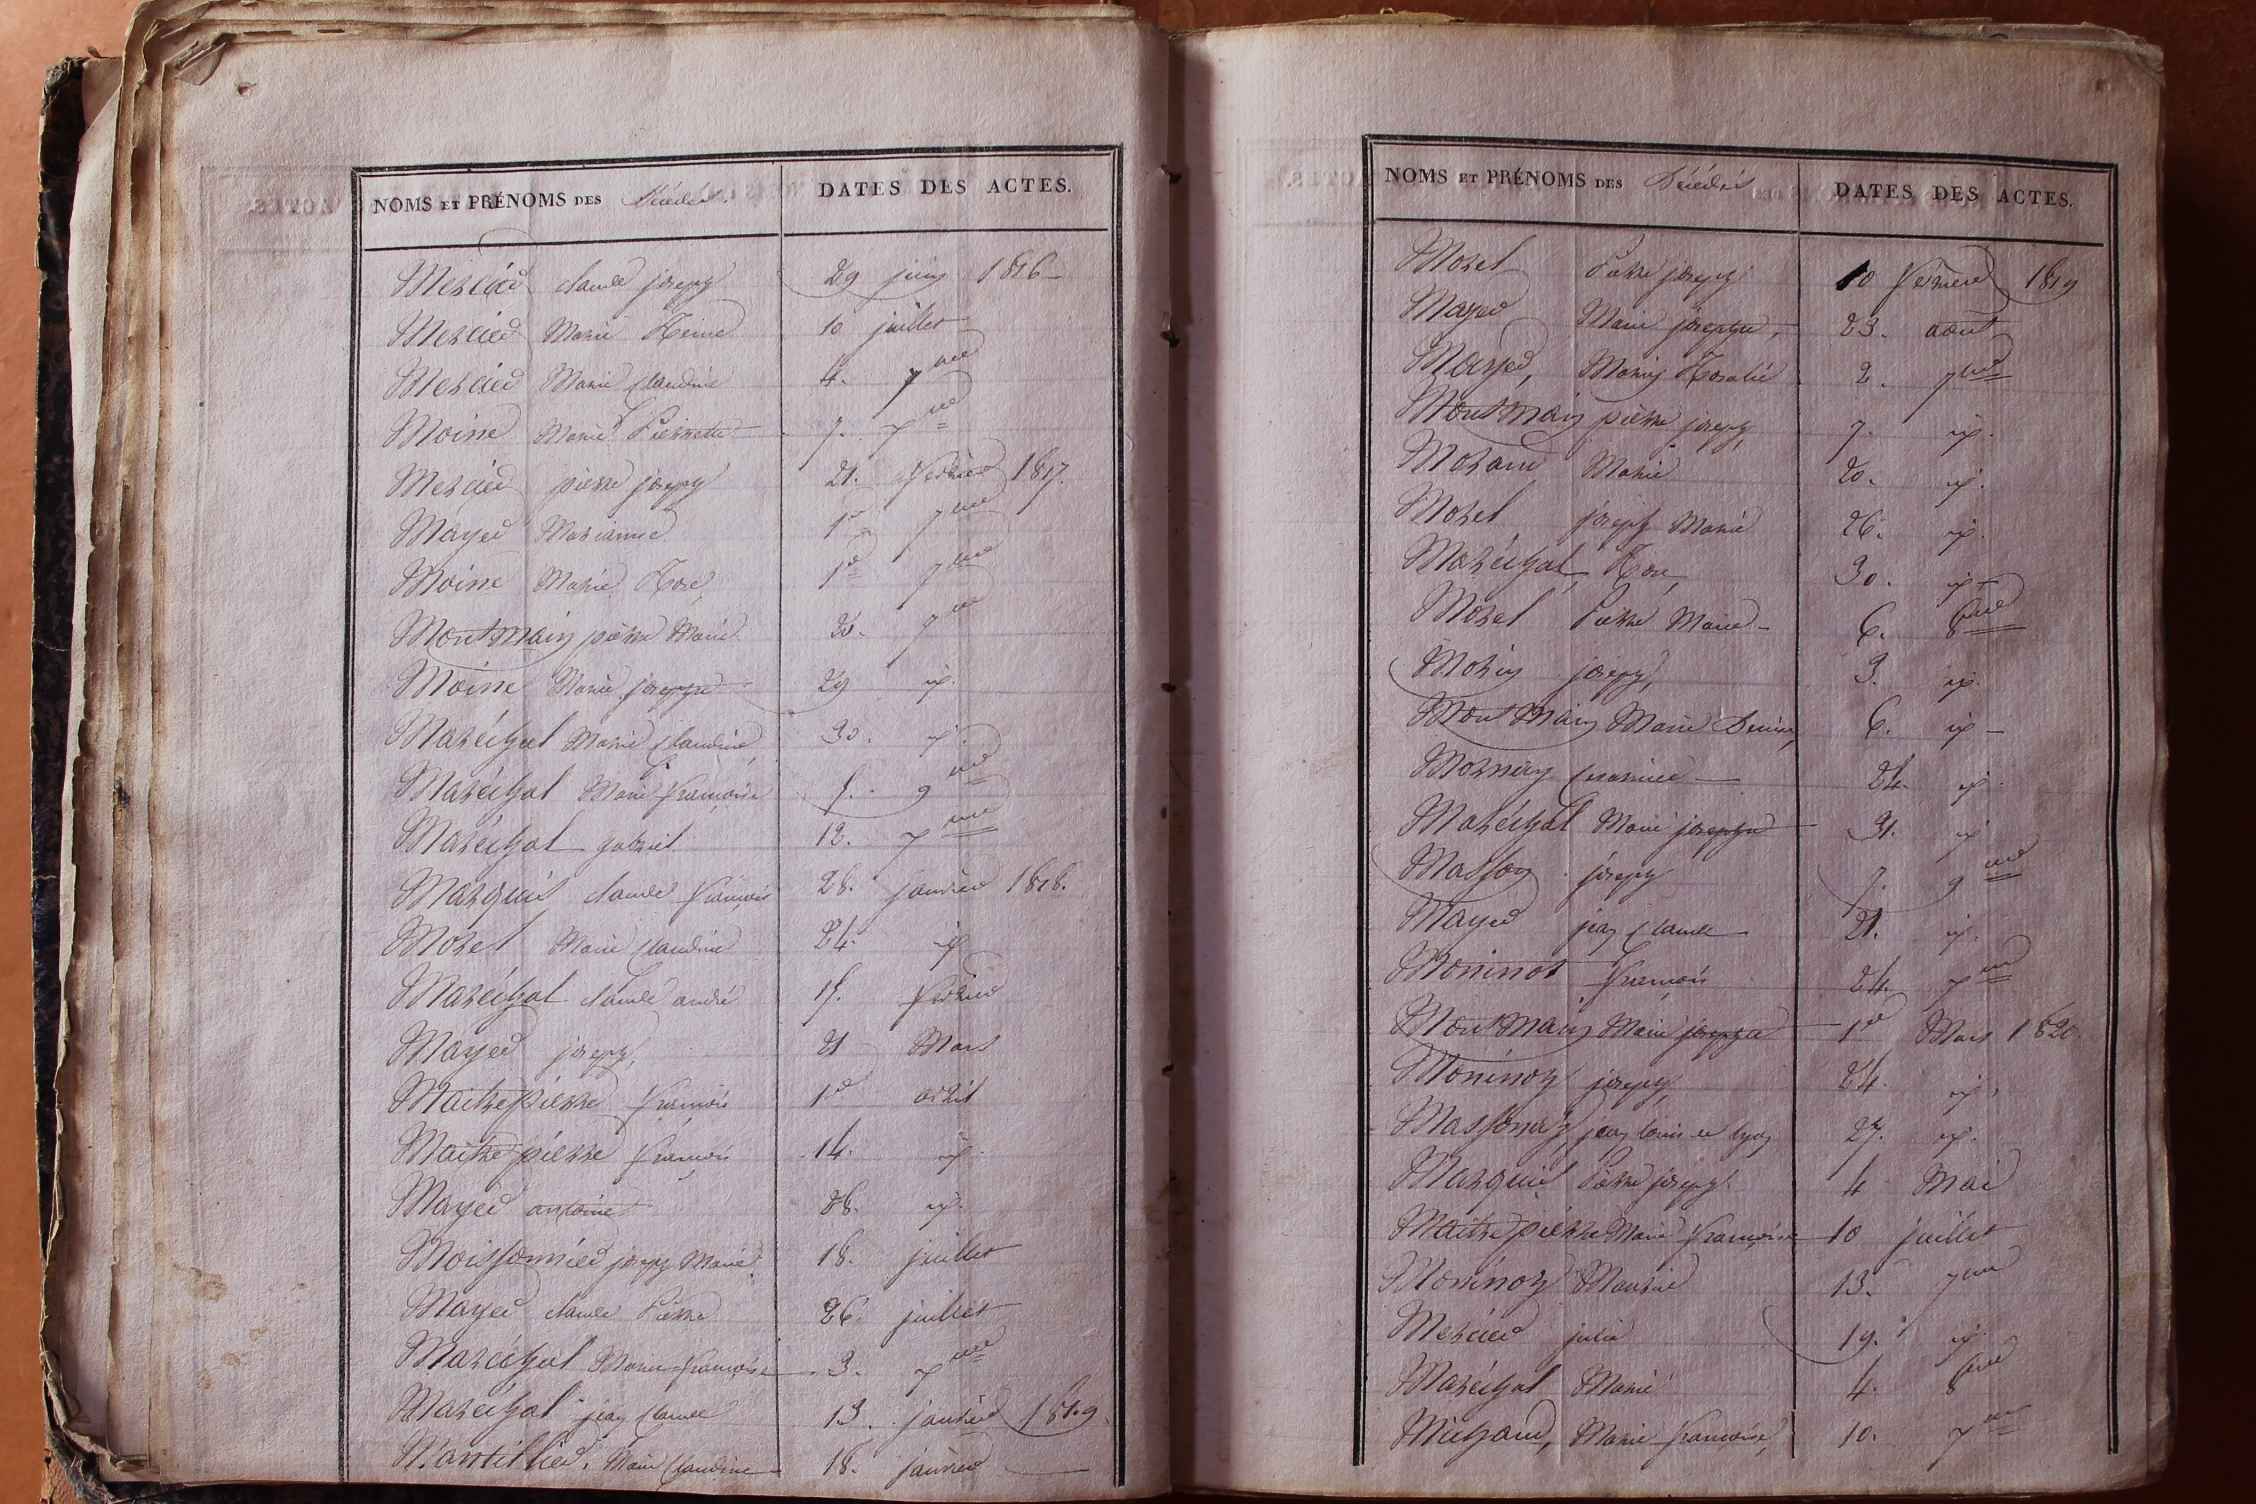 NOMS ET PRÉNOMS DES Décédés. DATES DES ACTES.
Mercier claude joseph 29 juin 1816
Mercier Marie Reine 10 juillet
Mercier Marie Claudine 4. 7bre
Moine Marie Pierrette 7.
Mercier pierre joseph 21. février 1817.
Mayer Marianne 1er 7bre
Moine Marie Rose 1er
Montmain pierre Marie 20.
Moine Marie josephe 29 id.
Maréchal Marie Claudine 30. id.
Maréchal Marie françoise 9bre
Maréchal gabriel 12.
Marquis claude françois 28. janvier 1818.
Morel Marie Claudine 24. id
Maréchal claude andré février
Mayer joseph, 21 Mars
Maitrepierre françois 1er avril
Maitrepierre françois 14. id.
Mayer antoine 28. id.
Moissonnier joseph Marie 18. juillet
Mayer claude Pierre 26. juillet
Maréchal Marie françoise 3.
Maréchal jean Claude 13. janvier 1819.
Mantillier. Marie Claudine 18. janvier
NOMS ET PRÉNOMS DES Décédés DATES DES ACTES.
Morel Pierre joseph 10 février 1819
Mayer Marie josephe, 23. août
Mayer, Marie Rosalie 2. 7bre
Montmain pierre joseph, 7. id.
Morand Marie 20. id.
Morel joseph Marie 26. id.
Maréchal, Rose, 30. id
Morel Pierre Marie 6. 8bre
Morin joseph, 3. id.
Montmain Marie Denise, 6. id
Mornay 24. id.
Maréchal Marie josephe 31. id
Masson joseph 7. 9bre
Mayer jean Claude 21. id.
Moninot françois 24.
Montmain Marie josephe 1er Mars 1820.
Moninot joseph, 24. id.
Massonnay, jean louis 27. id.
Marquis Pierre joseph 4 Mai
Maitrepierre Marie françoise 10 juillet
Moninot 13. 7bre
Mercier julie 19. id
Maréchal Marie 4. 8bre
Michaud, Marie françoise, 10.